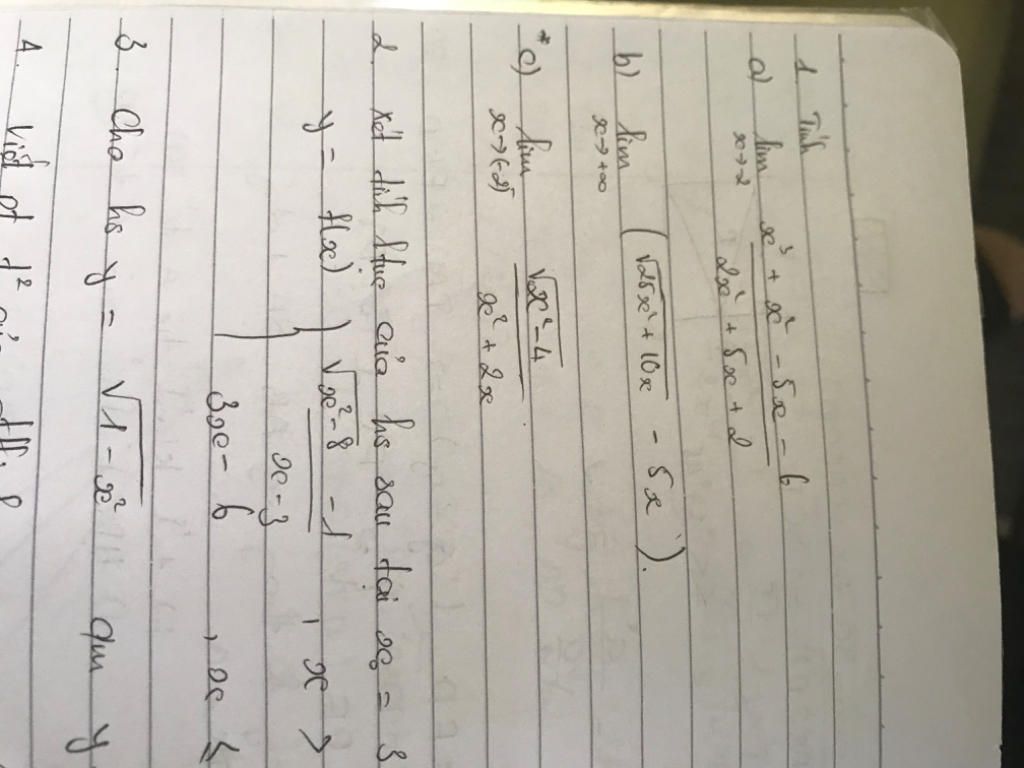 1. Tính
a) lim x→-2 (x³ + x² - 5x - 6) / (2x² + 5x + 2)
b) lim x→+∞ (√(25x² + 10x) - 5x).
*c) lim x→(-2)⁻ √(x² - 4) / (x² + 2x)
2. Xét tính liên tục của hs sau tại x₀ = 3
y = f(x) { (√(x² - 8) - 1) / (x - 3) , x >
3x - 6 , x ≤
3. Cho hs y = √(1 - x²) cm y
4. Viết pt t² của